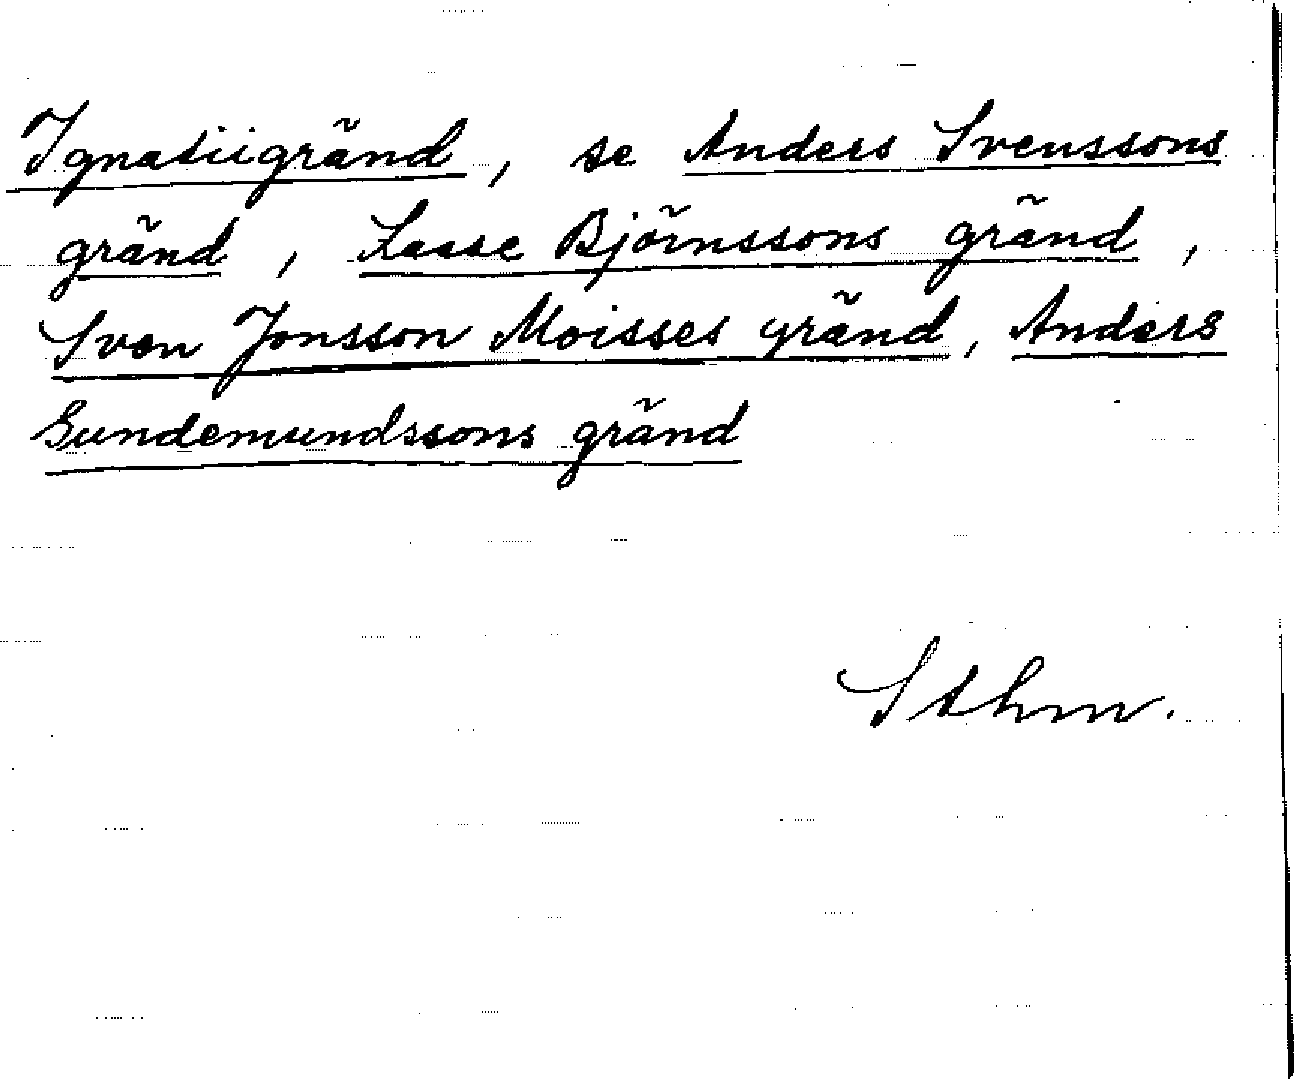 Ignatiigränd, se Anders Svenssons
gränd, Lasse Björnssons gränd,
Sven Jonsson Moisses gränd, Anders
Gundemundssons gränd
Sthm.